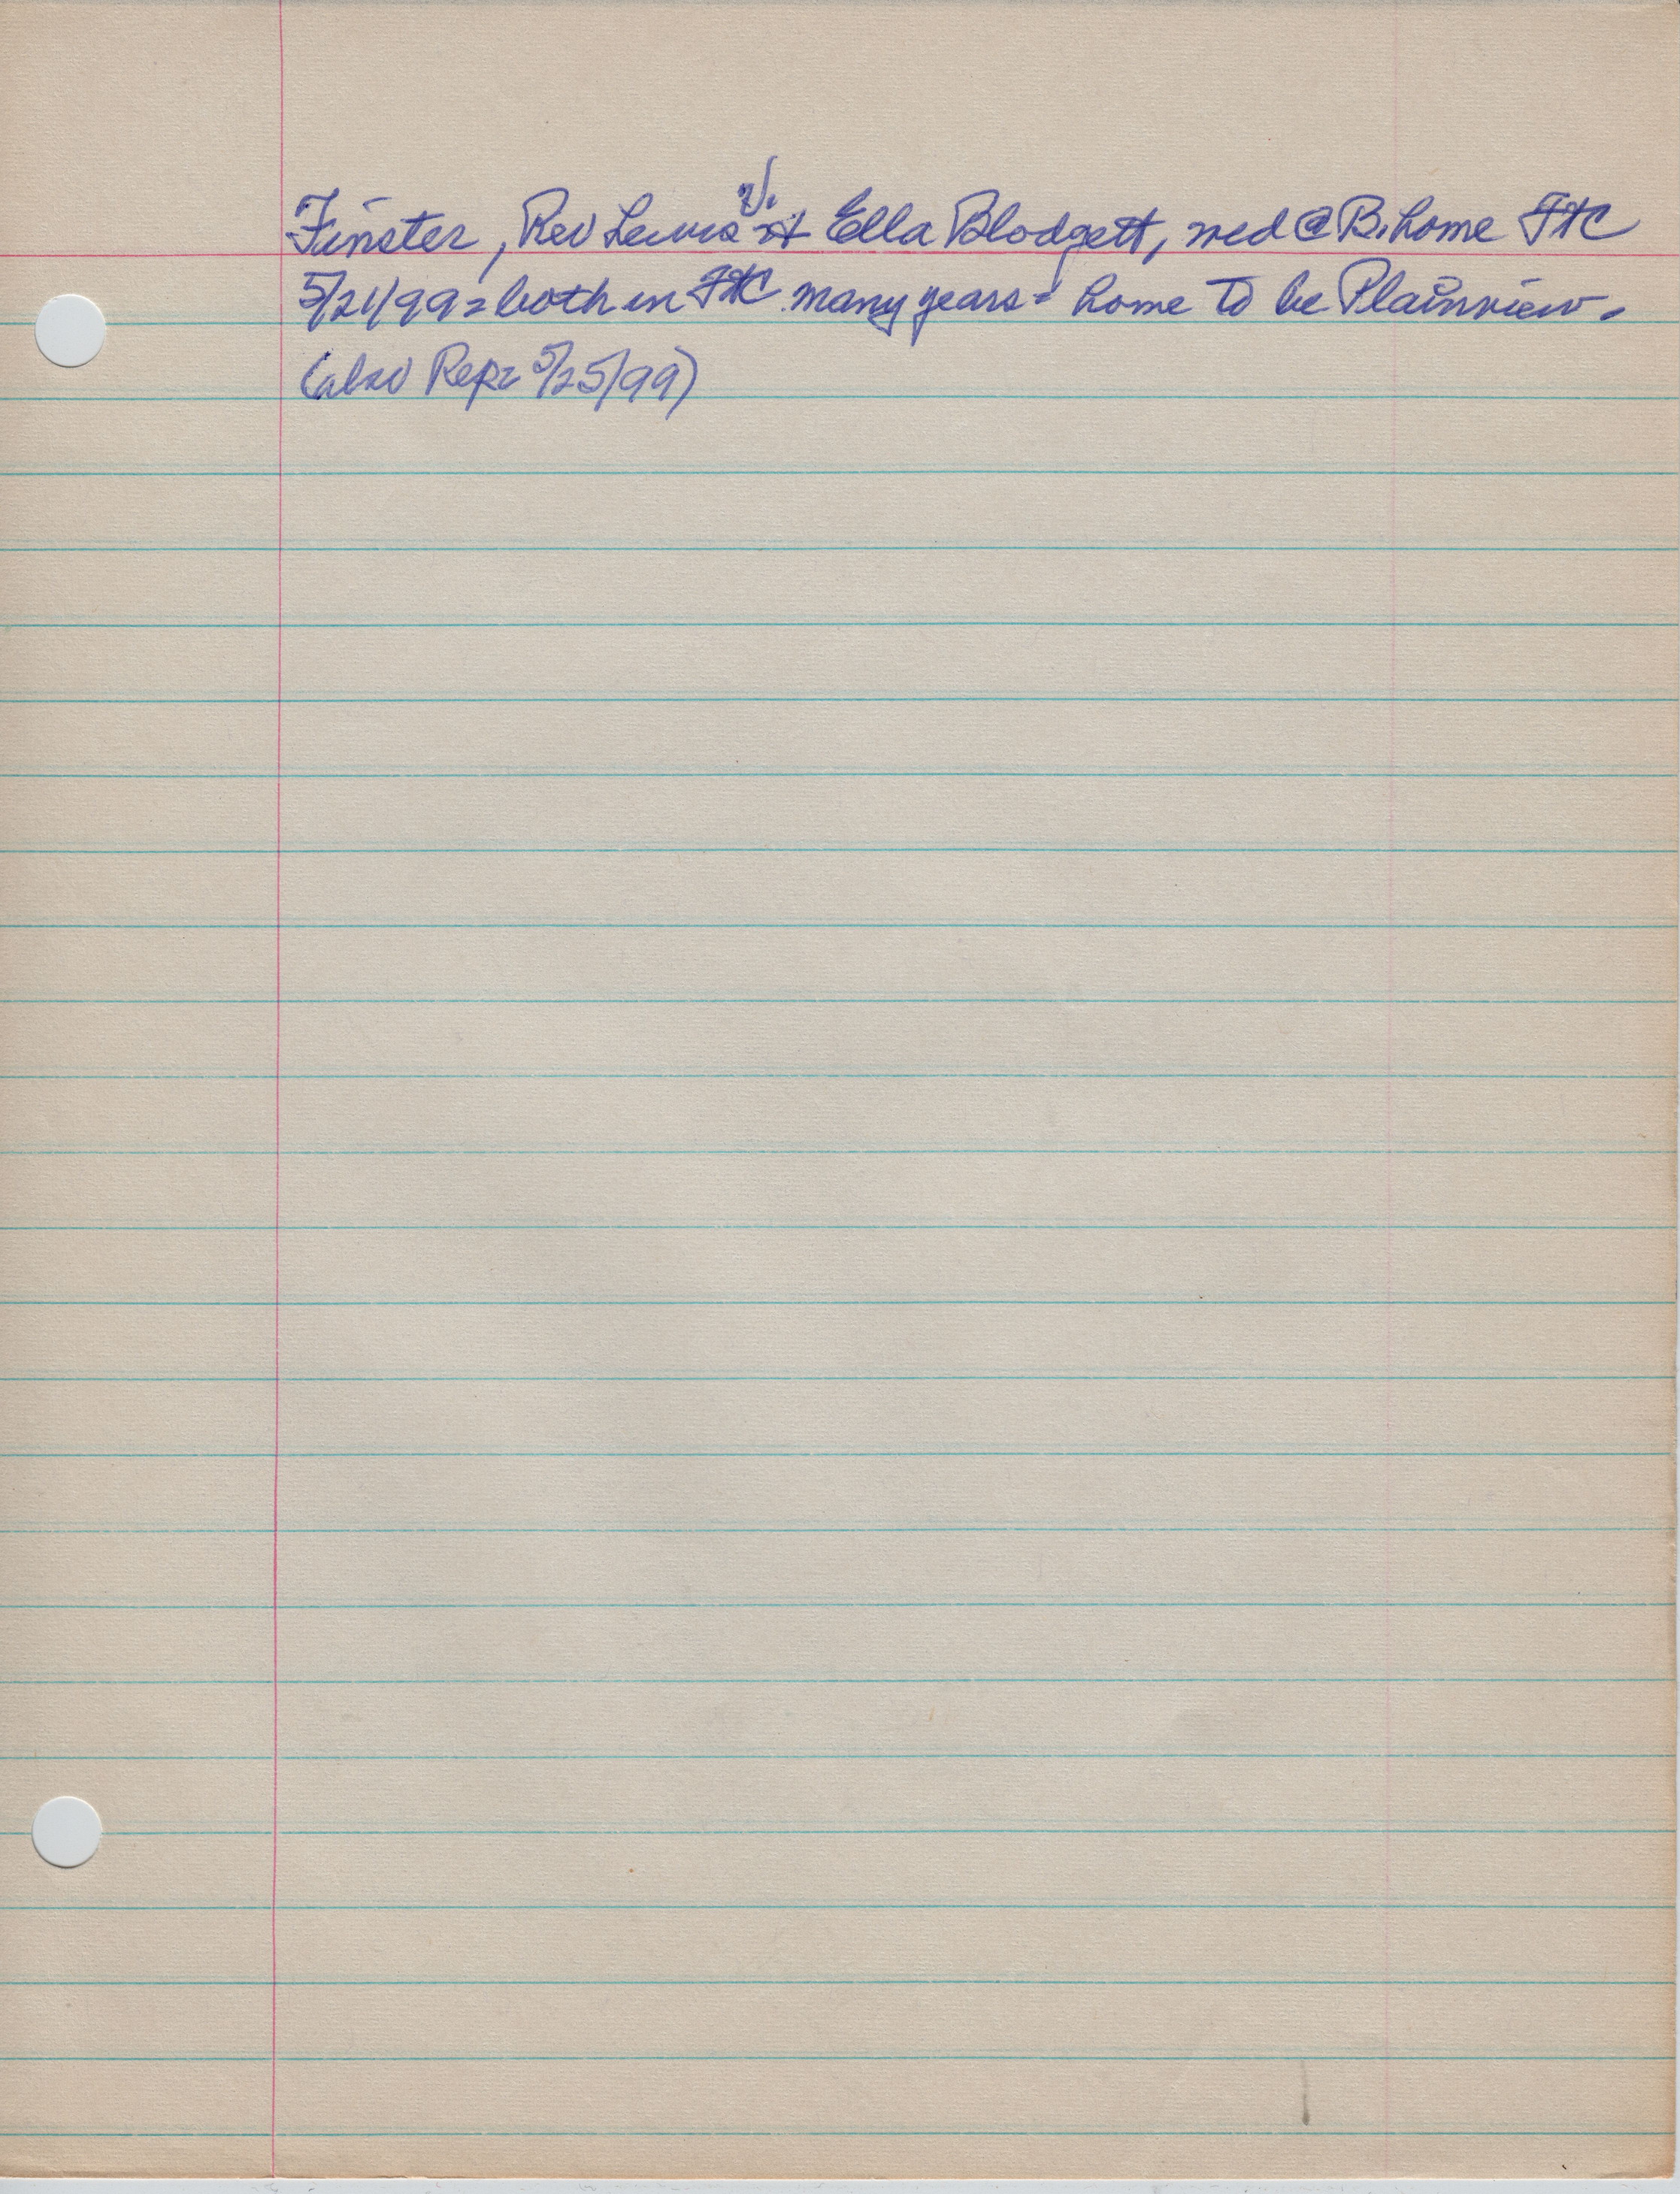 Finster, Rev Lewis V. & Ella Blodgett, wed @ B. home FtC
5/21/99 = both in FtC many years = home to be Plainview.
(also Rep = 5/25/99)